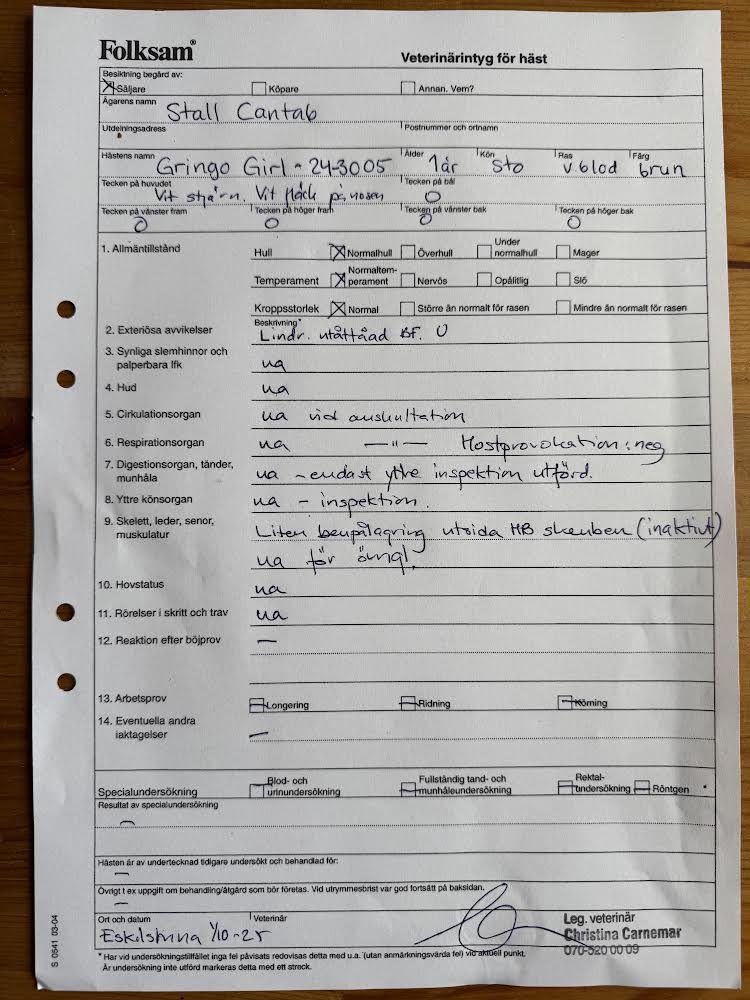 Folksam®
Veterinärintyg för häst
Besiktning begärd av:
Säljare Köpare Annan. Vem?
Ägarens namn Stall Cantab
Utdelningsadress Postnummer och ortnamn
Hästens namn Gringo Girl - 24-3005 Ålder 1år Kön Sto Ras v.blod Färg brun
Tecken på huvudet Vit stjärn. Vit fläck på nosen Tecken på bål 0
Tecken på vänster fram 0 Tecken på höger fram 0 Tecken på vänster bak 0 Tecken på höger bak 0
1. Allmäntillstånd Hull Normalhull Överhull Under normalhull Mager
Temperament Normaltem-perament Nervös Opålitlig Slö
Kroppsstorlek Normal Större än normalt för rasen Mindre än normalt för rasen
2. Exteriösa avvikelser Beskrivning* Lindr. utåttåad BF.
3. Synliga slemhinnor och palperbara lfk ua
4. Hud ua
5. Cirkulationsorgan ua vid auskultation
6. Respirationsorgan ua —"— Hostprovokation: neg
7. Digestionsorgan, tänder, munhåla ua - endast yttre inspektion utförd.
8. Yttre könsorgan ua - inspektion.
9. Skelett, leder, senor, muskulatur Liten benpålagring utsida HB skenben (inaktivt)
ua för övrigt.
10. Hovstatus ua
11. Rörelser i skritt och trav ua
12. Reaktion efter böjprov —
13. Arbetsprov Longering Ridning Körning
14. Eventuella andra iaktagelser —
Specialundersökning Blod- och urinundersökning Fullständig tand- och munhåleundersökning Rektal-undersökning Röntgen
Resultat av specialundersökning
—
Hästen är av undertecknad tidigare undersökt och behandlad för:
—
Övrigt t ex uppgift om behandling/åtgärd som bör företas. Vid utrymmesbrist var god fortsätt på baksidan.
—
Ort och datum Veterinär
Eskilstuna 1/10-25
Leg. veterinär
Christina Carnemar
070-520 00 09
* Har vid undersökningstillfället inga fel påvisats redovisas detta med u.a. (utan anmärkningsvärda fel) vid aktuell punkt.
Är undersökning inte utförd markeras detta med ett streck.
S 0541 03-04